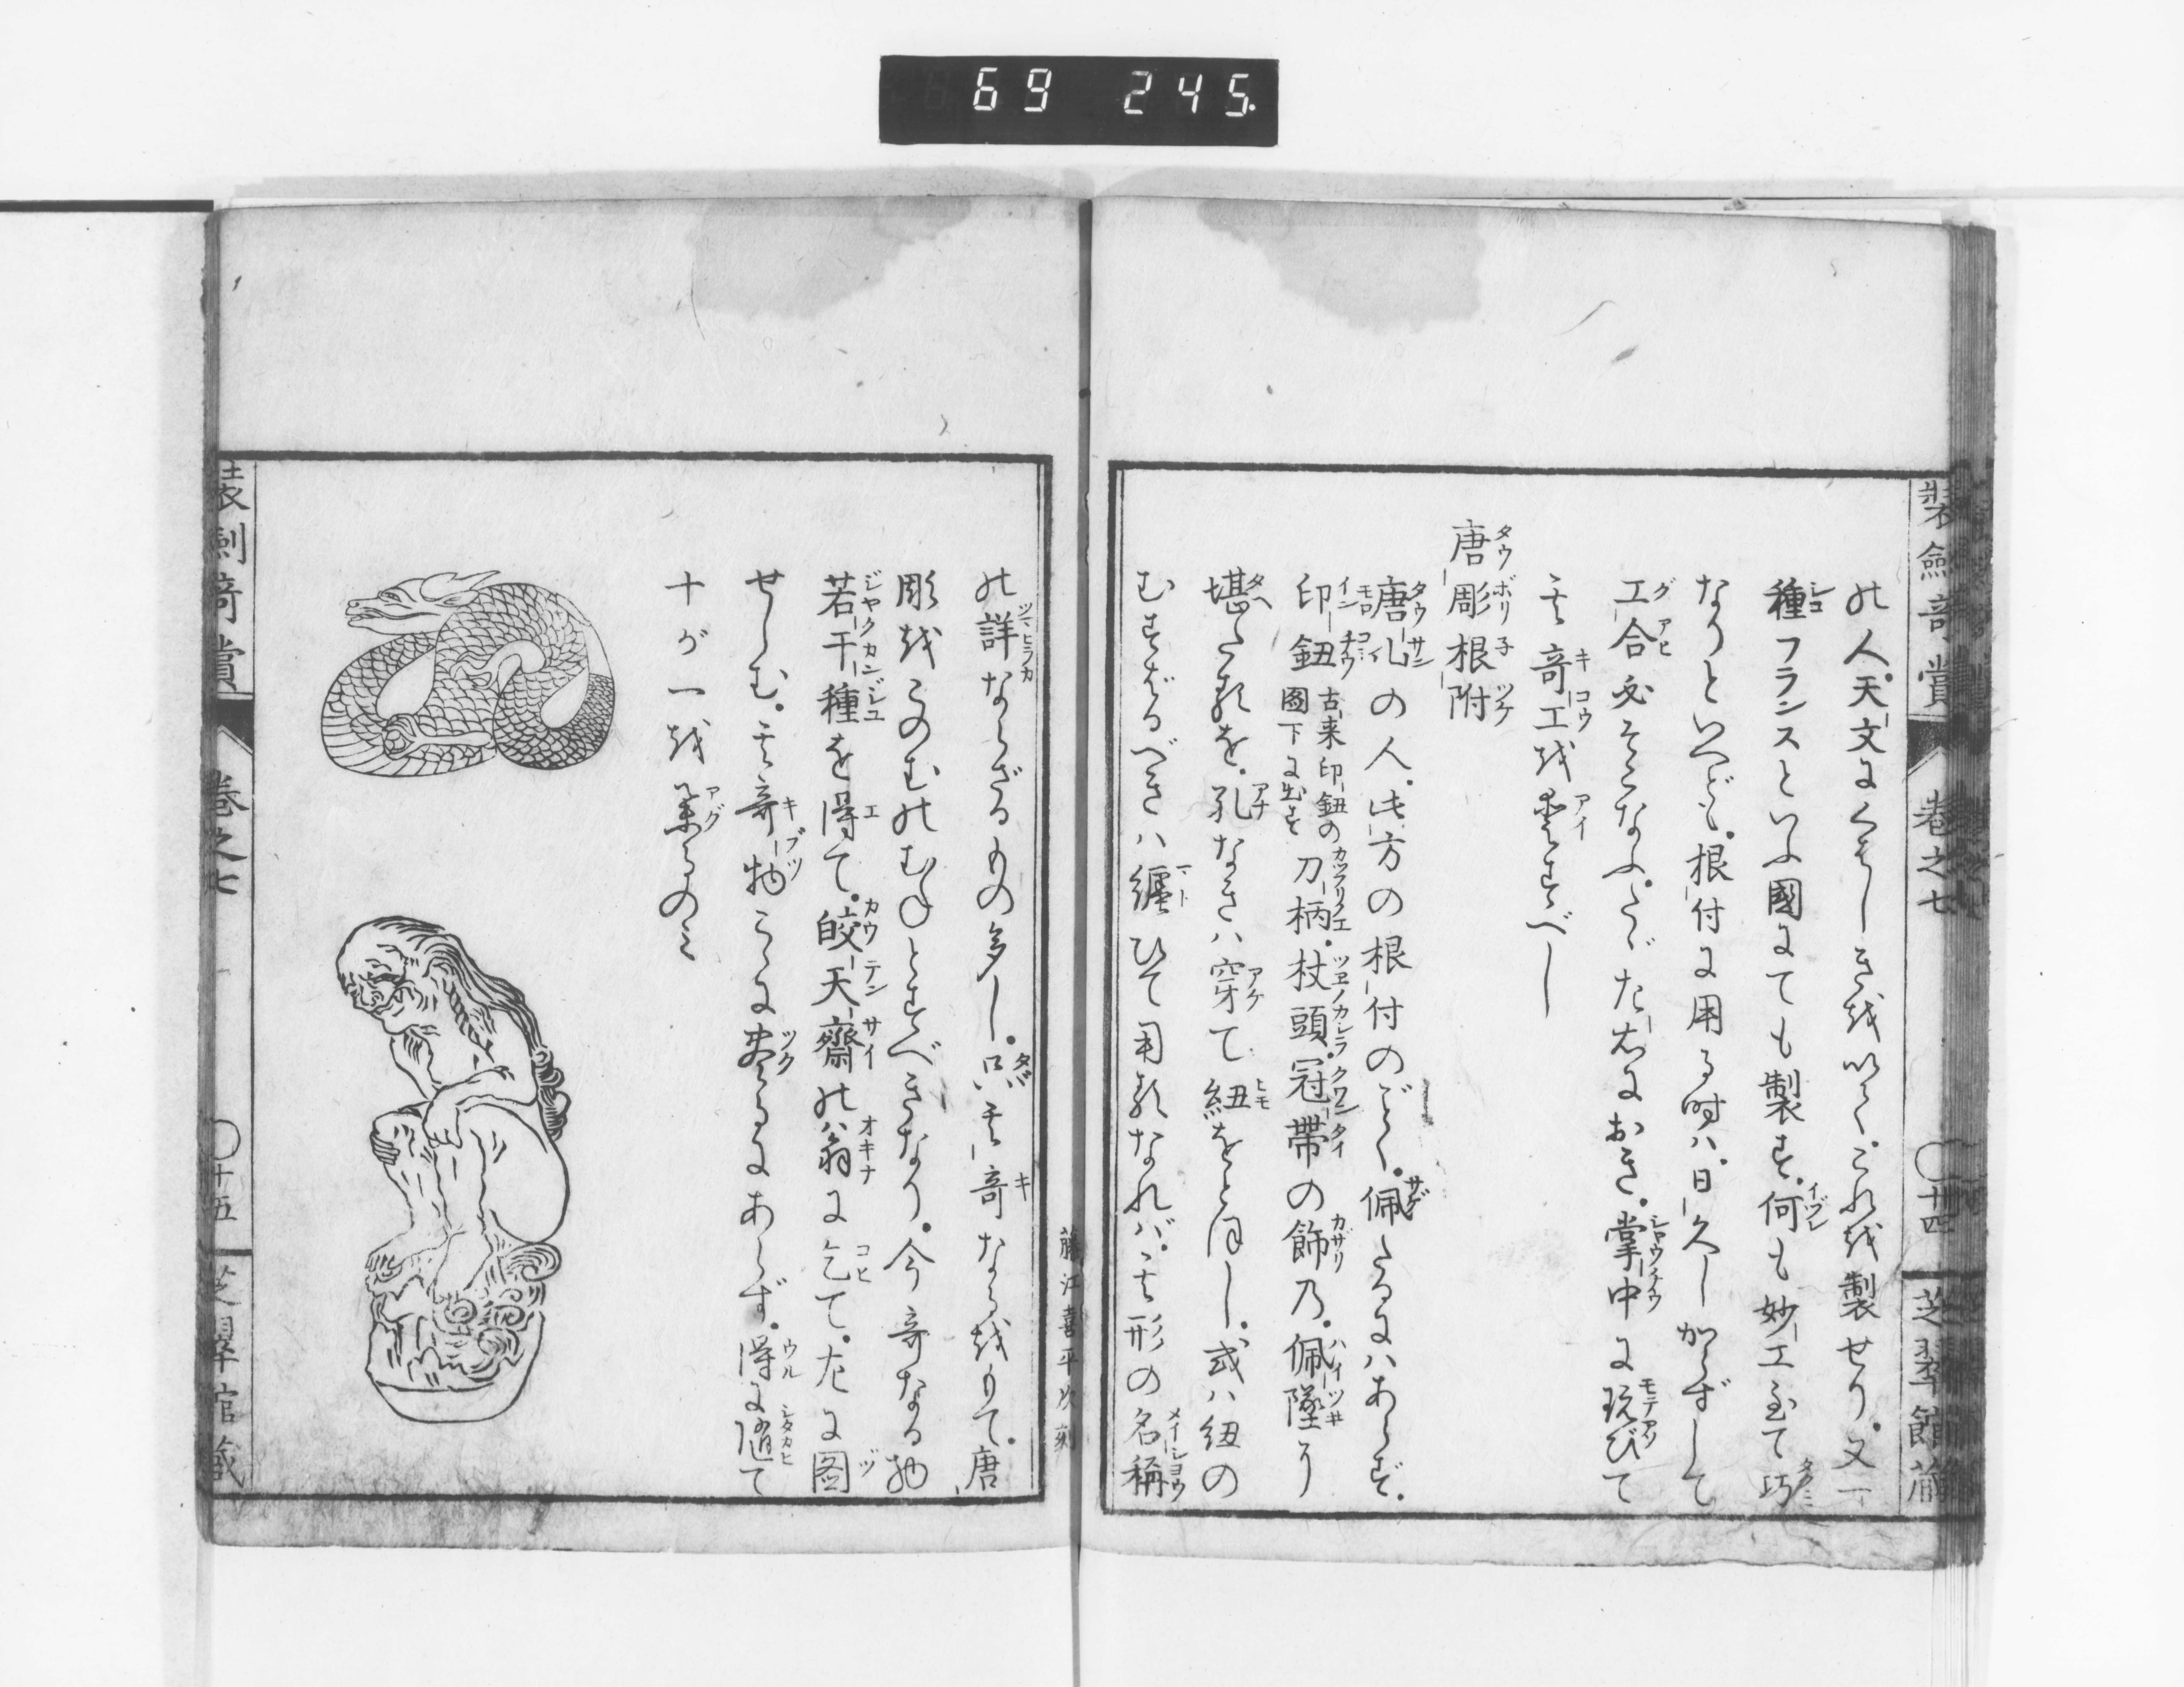 69 245.
装劒竒賞 巻之七 〇十四 芝翠館蔵
の人。天文にくはしき越以て。これ越製せり。又一
種フランスといふ國にても製す。何も妙工至て巧
なりといへども。根付に用る時ハ。日久しからずして
工合必そこなふ。たゞた右におき。掌中に玩びて
其竒工越愛すべし
唐彫根附
唐山の人。此方の根付のごとく。佩たるにハあらず。
印鈕 古来印鈕の図下に出す 刀柄。杖頭。冠帯の飾乃。佩墜り
堪たるを。孔なきハ穿て紐をとほし。或ハ紐の
むすぶべきハ纏ひて用るなれバ。其形の名稱
の詳ならざるもの多し。只其竒なる越もて。唐
彫越このむのむねとすべきなり。今竒なる物
若干種を得て。皎天齋の翁に乞て。左に図
せしむ。其竒物こゝに尽るにあらず。得に随て
十が一越挙るのミ
藤江喜平次刻
装劒竒賞 巻之七 〇十五 芝翠館蔵